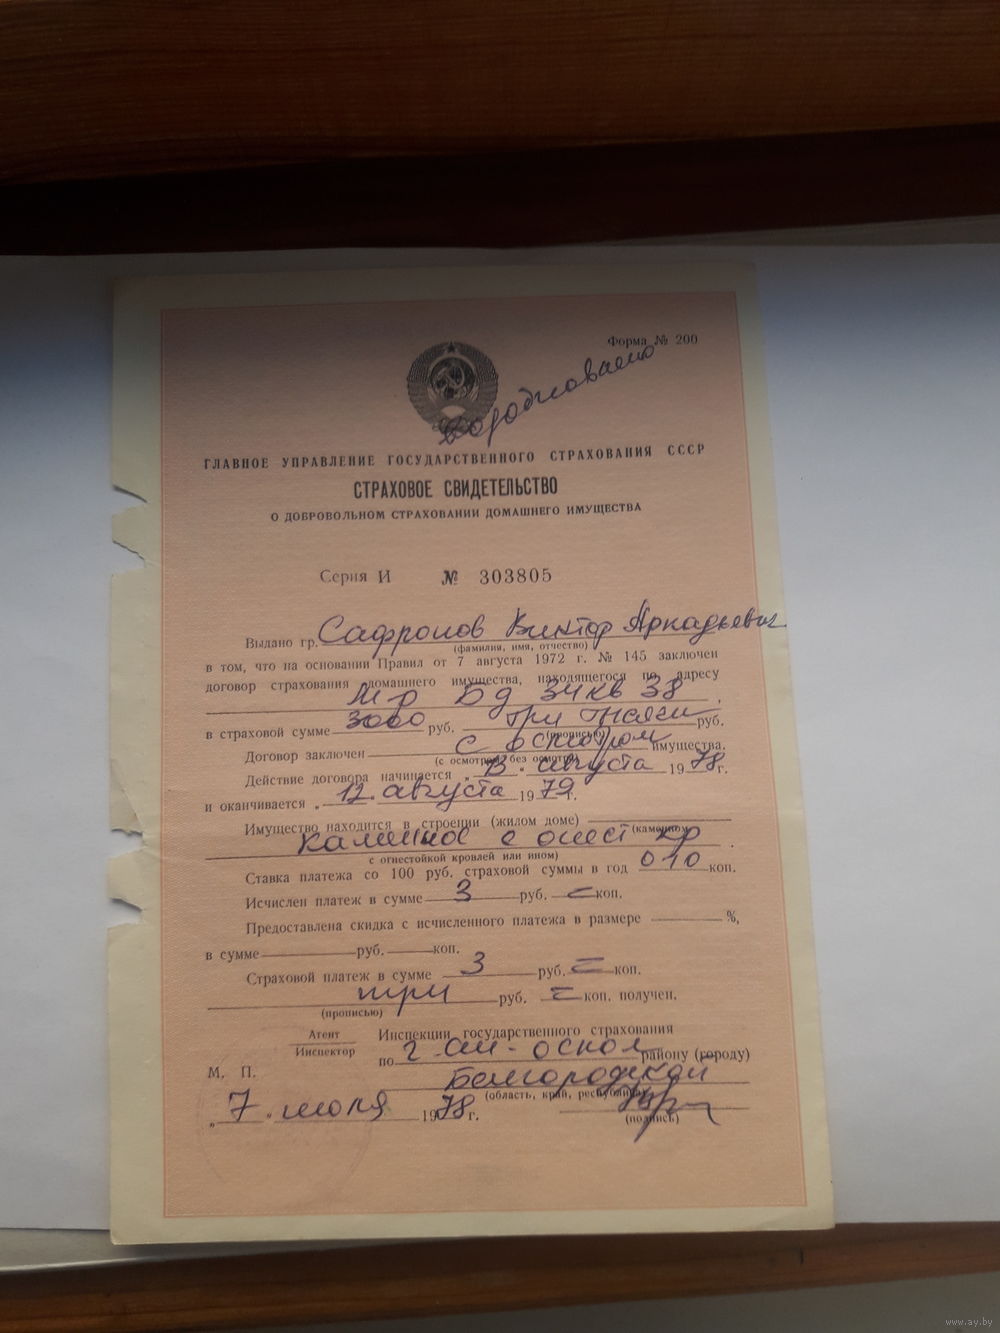 Форма № 200
ГЛАВНОЕ УПРАВЛЕНИЕ ГОСУДАРСТВЕННОГО СТРАХОВАНИЯ СССР
СТРАХОВОЕ СВИДЕТЕЛЬСТВО
О ДОБРОВОЛЬНОМ СТРАХОВАНИИ ДОМАШНЕГО ИМУЩЕСТВА
Серия И № 303805
Выдано гр. Сафронов Виктор Аркадьевич
(фамилия, имя, отчество)
в том, что на основании Правил от 7 августа 1972 г. № 145 заключен
договор страхования домашнего имущества, находящегося по адресу
34 кв 38,
в страховой сумме 3000 руб. три тысячи руб.
(прописью)
Договор заключен с осмотром имущества.
(с осмотром, без осмотра)
Действие договора начинается „13" августа 1978г.
и оканчивается „12 августа 1979г.
Имущество находится в строении (жилом доме)
(каменном
каменное с огнест кр.
с огнестойкой кровлей или ином)
Ставка платежа со 100 руб. страховой суммы в год 010 коп.
Исчислен платеж в сумме 3 руб. = коп.
Предоставлена скидка с исчисленного платежа в размере %,
в сумме руб. коп.
Страховой платеж в сумме 3 руб. = коп.
три руб. = коп. получен.
(прописью)
Агент
Инспектор
Инспекции государственного страхования
по оскол району (городу)
М. П.
Белгородской
(область, край, республика)
„7" июля 1978г.
(подпись)
www.ay.by